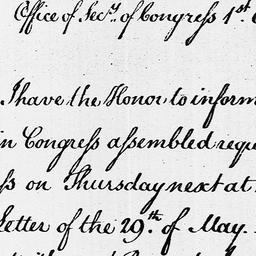 Office of Secy. of Congress 1st.
I have the Honor to inform
in Congress assembled requ
ss on Thursday next at
Letter of the 29th. of May.